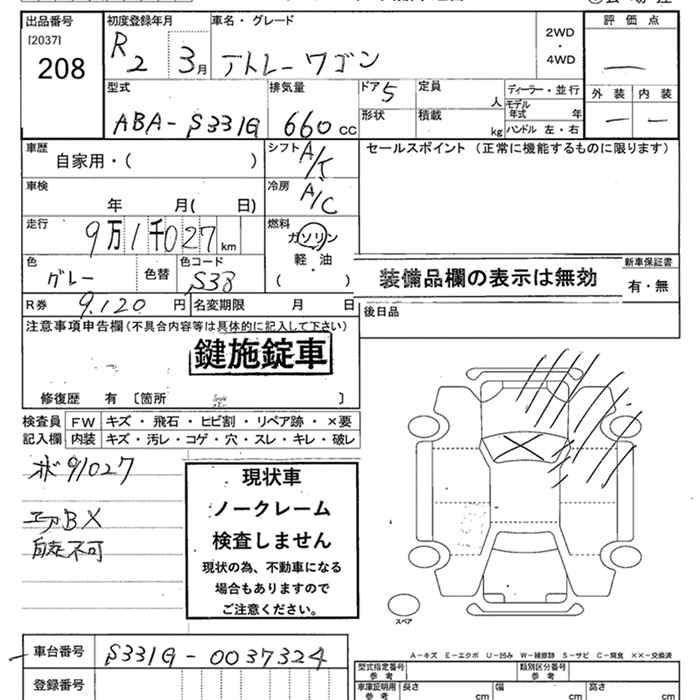 出品番号
[2037]
208
初度登録年月
R2 3月
車名・グレード
アトレーワゴン
2WD
・
4WD
評価点
—
外装 内装
— —
型式
ABA-S331G
排気量
660 CC
ドア 5
形状
定員 人
積載 kg
ディーラー・並行
モデル年式 年
ハンドル 左・右
車歴
自家用・( )
シフト A/T
セールスポイント (正常に機能するものに限ります)
車検
年 月( 日)
冷房 A/C
走行
9万1千027km
燃料
ガソリン
軽・油
( )
色
グレー
色替
色コード
S38
装備品欄の表示は無効
新車保証書
有・無
R券 9.120 円
名変期限 月 日
後日品
注意事項申告欄(不具合内容等は具体的に記入して下さい)
鍵施錠車
修復歴 有 〔箇所 〕
検査員記入欄
FW キズ・飛石・ヒビ割・リペア跡・×要
内装 キズ・汚レ・コゲ・穴・スレ・キレ・破レ
メボ91027
エアBX
自走不可
現状車
ノークレーム
検査しません
現状の為、不動車になる
場合もありますので
ご注意ください。
スペア
車台番号 S331G-0037324
登録番号
A-キズ E-エクボ U-凹み W-補修跡 S-サビ C-腐食 ××-交換済
型式指定番号 参考
類別区分番号 参考
車庫証明用 参考
長さ cm
幅 cm
高さ cm